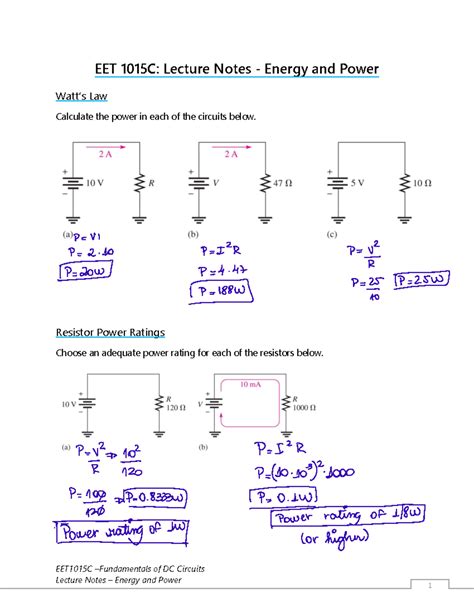 EET 1015C: Lecture Notes - Energy and Power
Watt's Law
Calculate the power in each of the circuits below.
2 A
10 V
R
2 A
V
47 Ω
5 V
10 Ω
(a) P= VI
P = 2 . 10
P=20W
(b)
P=I²R
P=4.47
P=188W
(c)
P= V²
R
P=25
10
P=25W
Resistor Power Ratings
Choose an adequate power rating for each of the resistors below.
10 V
R
120 Ω
V
10 mA
R
1000 Ω
(a) P=V² ⇒ 10²
R 120
P=100 ⇒ P=0.8333W
120
Power rating of 1W
(b)
P=I²R
P=(10.10⁻³)².1000
P=0.1W
Power rating of 1/8W
(or higher)
EET1015C –Fundamentals of DC Circuits
Lecture Notes – Energy and Power
1